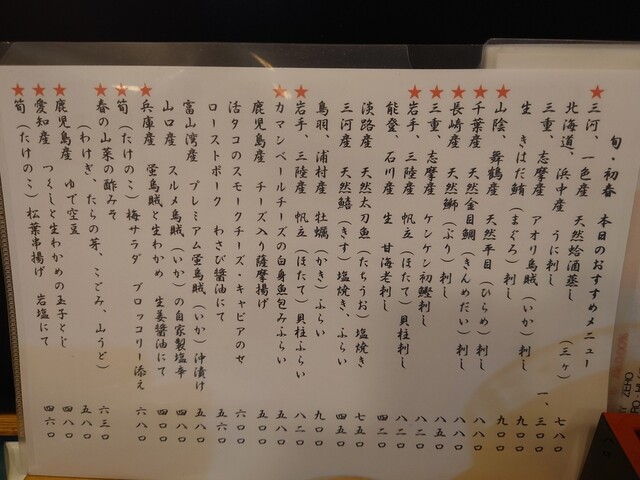 旬・初春 本日のおすすめメニュー
★三河、一色産 天然蛤酒蒸し (三ヶ) 七八〇
北海道、浜中産 うに刺し 一、三〇〇
三重、志摩産 アオリ烏賊(いか)刺し 九〇〇
生 きはだ鮪(まぐろ)刺し 九〇〇
★山陰、舞鶴産 天然平目(ひらめ)刺し 八八〇
★千葉産 天然金目鯛(きんめだい)刺し 八八〇
★長崎産 天然鰤(ぶり)刺し 八五〇
★三重、志摩産 ケンケン初鰹刺し 八二〇
★岩手、三陸産 帆立(ほたて)貝柱刺し 八二〇
能登、石川産 生 甘海老刺し 四二〇
淡路産 天然太刀魚(たちうお)塩焼き 七五〇
三河産 天然鱚(きす)塩焼き、ふらい 四五〇
鳥羽、浦村産 牡蠣(かき)ふらい 九〇
★岩手、三陸産 帆立(ほたて)貝柱ふらい 八二〇
★カマンベールチーズの白身魚包みふらい 五八〇
鹿児島産 チーズ入り薩摩揚げ 五八〇
活タコのスモークチーズ・キャビアのせ 六〇〇
ローストポーク わさび醤油にて 五六〇
富山湾産 プレミアム蛍烏賊(いか)沖漬け 五八〇
山口産 スルメ烏賊(いか)の自家製塩辛 四八〇
★兵庫産 蛍烏賊と生わかめ 生姜醤油にて
★筍(たけのこ)梅サラダ ブロッコリー添え 六八〇
★春の山菜の酢みそ
(わけぎ、たらの芽、こごみ、山うど) 六三〇
★鹿児島産 ゆで空豆 五八〇
★愛知産 つくしと生わかめの玉子とじ 四八〇
★筍(たけのこ)松葉串揚げ 岩塩にて 四六〇